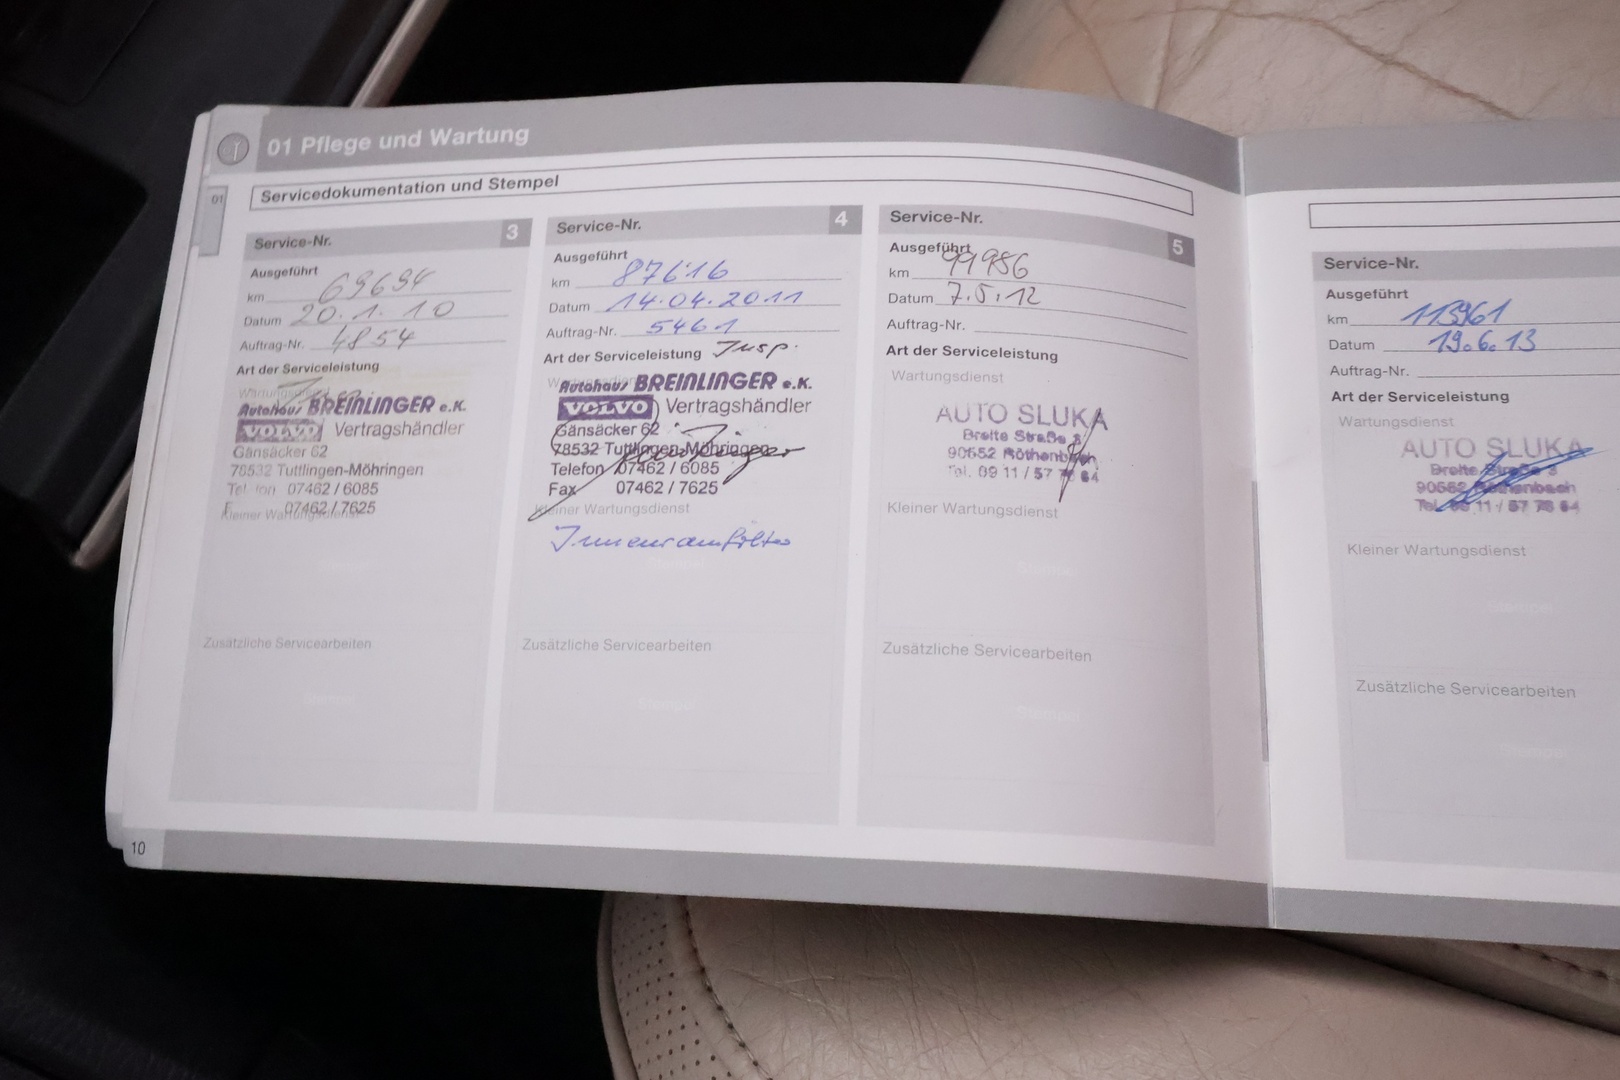 01 Pflege und Wartung
01
Servicedokumentation und Stempel
Service-Nr. 3
Ausgeführt
km 69694
Datum 20.1.10
Auftrag-Nr. 4854
Art der Serviceleistung
Autohaus BREINLINGER e.K.
VOLVO Vertragshändler
Gänsäcker 62
78532 Tuttlingen-Möhringen
07462 / 6085
07462 / 7625
Kleiner Wartungsdienst
Zusätzliche Servicearbeiten
Stempel
Service-Nr. 4
Ausgeführt
km 87616
Datum 14.04.2011
Auftrag-Nr. 5461
Art der Serviceleistung Insp.
Autohaus BREINLINGER e.K.
VOLVO Vertragshändler
Gänsäcker 62
78532 Tuttlingen-Möhringen
Telefon 07462 / 6085
Fax 07462 / 7625
Kleiner Wartungsdienst
Innenraumfilter
Stempel
Zusätzliche Servicearbeiten
Stempel
Service-Nr. 5
Ausgeführt
km 99986
Datum 7.5.12
Auftrag-Nr.
Art der Serviceleistung
Wartungsdienst
AUTO SLUKA
Breite Straße 3
90552 Röthenbach
Tel. 09 11 / 57 78 84
Kleiner Wartungsdienst
Stempel
Zusätzliche Servicearbeiten
Stempel
10
Service-Nr.
Ausgeführt
km 113961
Datum 19.6.13
Auftrag-Nr.
Art der Serviceleistung
Wartungsdienst
AUTO SLUKA
Breite Straße 3
90552 Röthenbach
Tel. 09 11 / 57 78 84
Kleiner Wartungsdienst
Stempel
Zusätzliche Servicearbeiten
Stempel